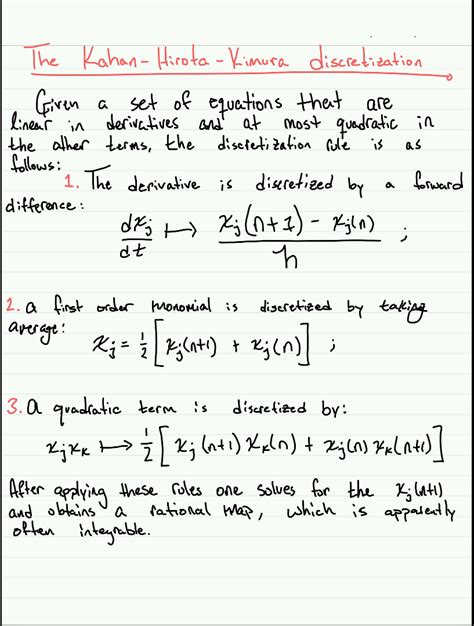 The Kahan-Hirota-Kimura discretization
Given a set of equations that are
linear in derivatives and at most quadratic in
the other terms, the discretization rule is as
follows:
1. The derivative is discretized by a forward
difference:
dxⱼ/dt ↦ (xⱼ(n+1) - xⱼ(n))/h ;
2. a first order monomial is discretized by taking
average:
xⱼ = 1/2 [xⱼ(n+1) + xⱼ(n)] ;
3. a quadratic term is discretized by:
xⱼxₖ ↦ 1/2 [xⱼ(n+1)xₖ(n) + xⱼ(n)xₖ(n+1)]
After applying these rules one solves for the xⱼ(n+1)
and obtains a rational map, which is apparently
often integrable.